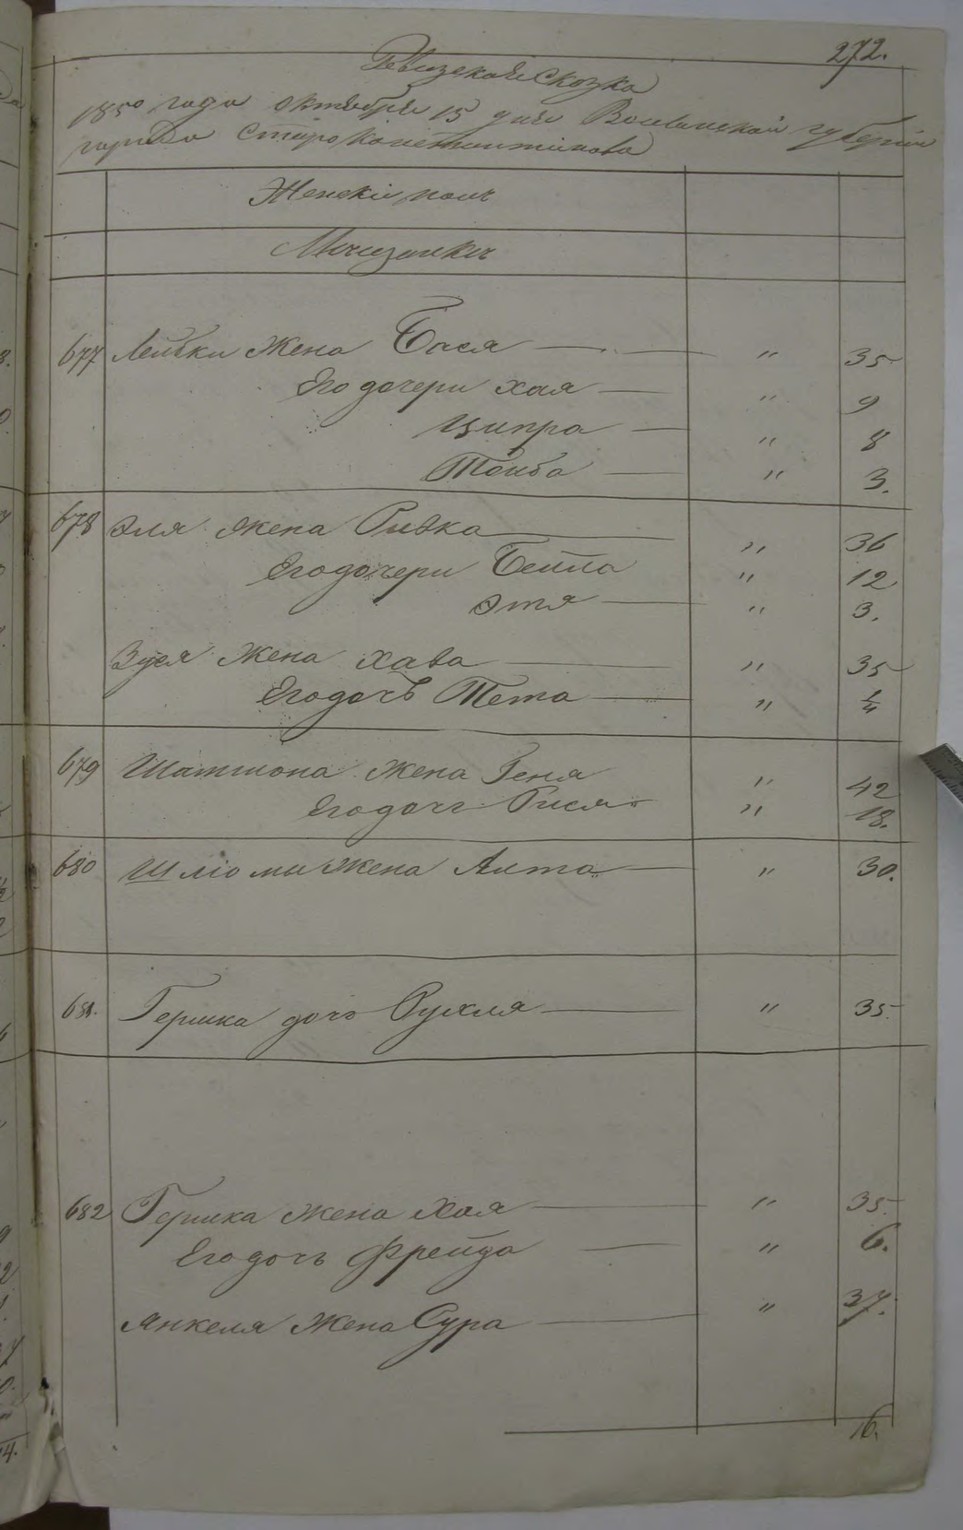 272.
Ревизская Сказка
1850 года октября 15 дня Волынской губернии
города Староконстантинова
Женскій полъ
Мещанки
677 Лейбки жена Бася — " 35
Его дочери Хая — " 9
Ципра — " 8
Тойба — " 3.
678 Эля жена Ривка — " 36
Его дочери Бейла " 12
Этя — " 3.
Зуся жена Хава — " 35
Его дочь Тета — " 1/4
679 Шамшона жена Геня " 42
Его дочь Рися " 18.
680 Шліомы жена Алта — " 30.
681. Гершка дочь Рухля — " 35
682 Гершка жена Хая — " 35.
Его дочь Фрейда — " 6.
Янкеля жена Сура — " 37.
16.